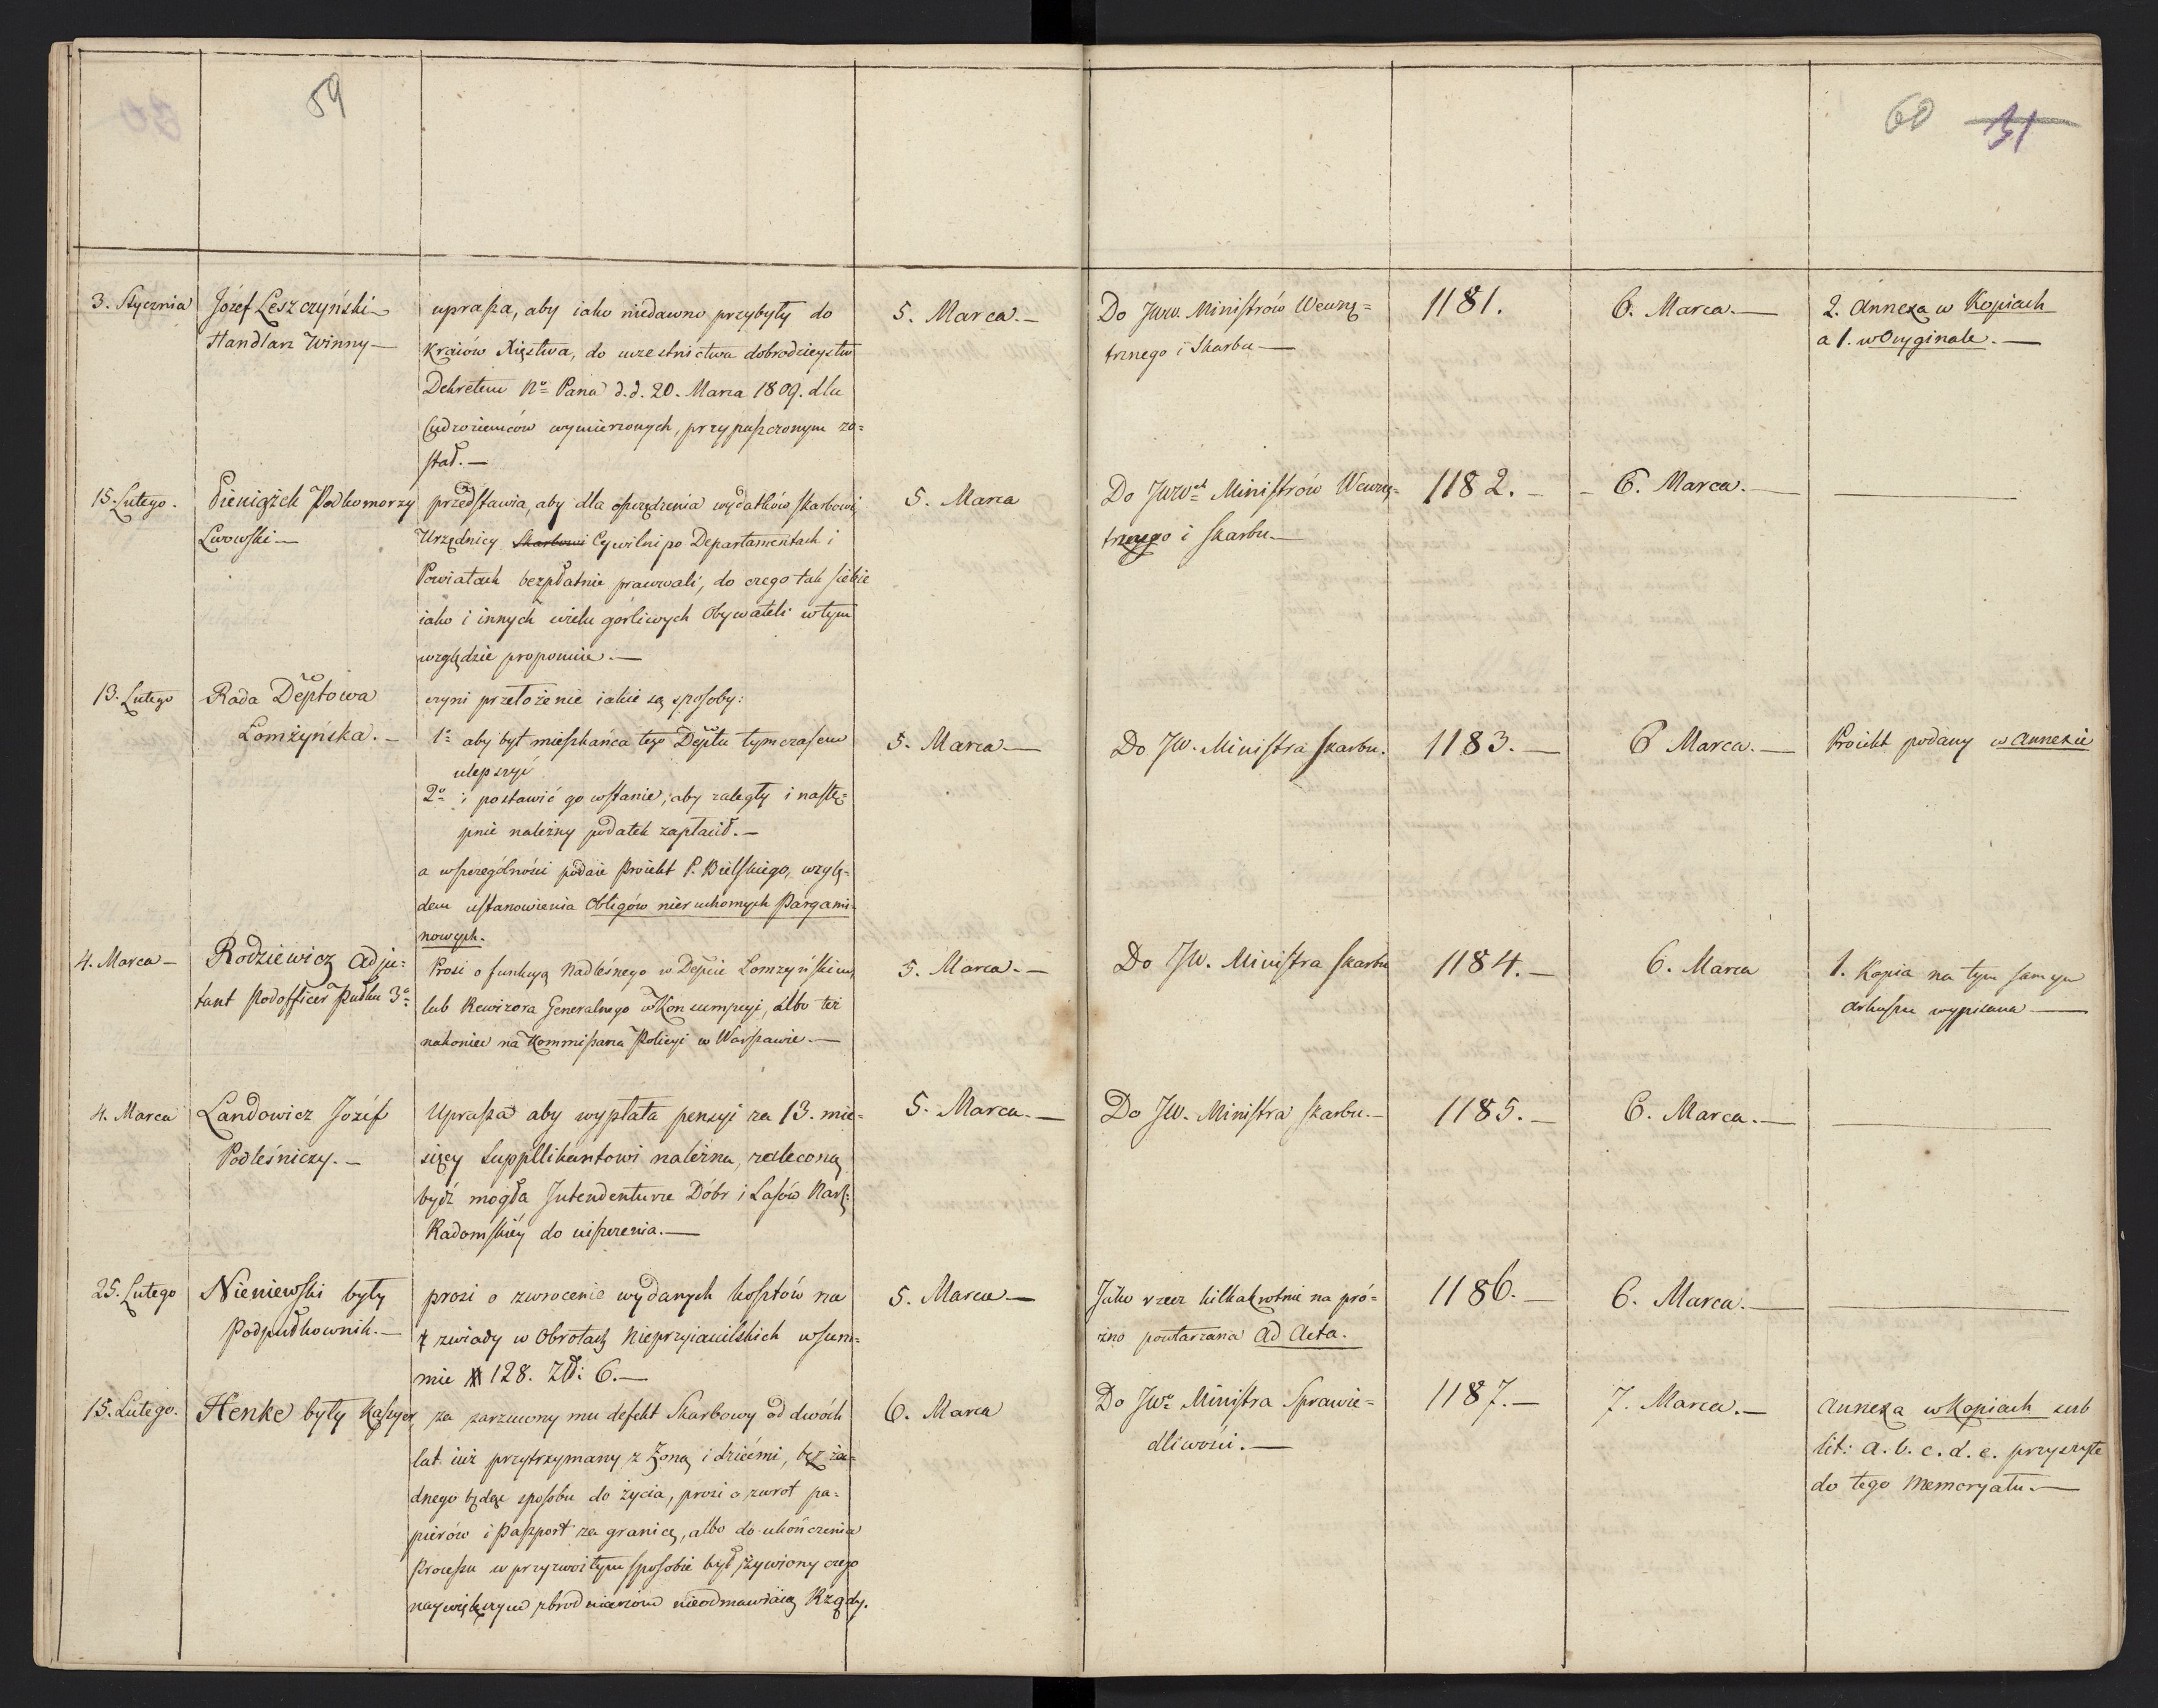 59
60 31
3. Stycznia
Józef Leszczyński
Handlarz Winny —
uprasza, aby iako niedawno przybyły do
kraiów Xięstwa, do uczestnictwa dobrodzieystw
Dekretem No Pana d.d. 20. Marca 1809. dla
Cudzoziemców wymierzonych, przypuszczonym zo=
stał. —
5. Marca. —
Do Jww. Ministrów Wewnę=
trznego i Skarbu —
1181.
6. Marca. —
2. Annexa w Kopiach
a 1. w Oryginale. —
15. Lutego.
Pieniążek Podkomorzy
Lwowski —
przedstawia, aby dla oszczędzenia wydatków skarbowi
Urzędnicy Skarbowi Cywilni po Departamentach i
Powiatach bezpłatnie pracowali, do czego tak siebie
iako i innych wielu gorliwych Obywateli w tym
względzie proponuie. —
5. Marca
Do Jww. Ministrów Wewnę=
trznego i Skarbu —
1182. —
6. Marca. —
13. Lutego
Rada Deptowa
Łomżyńska. —
czyni przełożenie iakie są sposoby:
1o aby byt mieszkańca tego Deptu tymczasem
ulepszyć
2o i postawić go w stanie, aby zaległy i nastę=
pnie należny podatek zapłacił. —
a wszczególności podaie Proiekt P. Bielskiego, wzglę=
dem ustanowienia Obligów nieruchomych Pargami=
nowych.
5. Marca —
Do JW. Ministra Skarbu.
1183. —
6 Marca. —
Proiekt podany w Annexie
4. Marca —
Rodziewicz Adju=
tant Podofficer Pułku 3o
Prosi o funkcyą Nadleśnego w Depcie Łomżyńskim
lub Rewizora Generalnego w Konsumpcyi, albo też
nakoniec na Kommissarza Policyi w Warszawie. —
5. Marca. —
Do JW. Ministra Skarbu
1184. —
6. Marca
1. Kopia na tym samym
Arkuszu wypisana —
4. Marca
Landowicz Józef
Podleśniczy. —
Uprasza aby wypłata pensyi za 13. mie=
sięcy Suppllikantowi należna, zaleconą
bydź mogła Intendenturze Dóbr i Lasów Nar:
Radomskiéy do uiszczenia. —
5. Marca. —
Do JW. Ministra Skarbu. —
1185. —
6. Marca. —
25. Lutego
Nieniewski były
Podpułkownik. —
prosi o zwrocenie wydanych kosztów na
zwiady w Obrotach Nieprzyiacielskich w sum=
mie # 128. Zł: 6. —
5. Marca —
Jako rzecz kilkakrotnie na pró=
żno powtarzana Ad Acta.
1186. —
6. Marca. —
15. Lutego.
Henke były Kassyer,
za zarzucony mu defekt Skarbowy od dwóch
lat iuż przytrzymany z Żoną i dziećmi, bez ża=
dnego będąc sposobu do życia, prosi o zwrot pa=
pierów i Paszport za granicę, albo do ukończenia
Processu w przyzwoitym sposobie był żywiony czego
naywiększym zbrodniarzom nieodmawiaią Rządy.
6. Marca
Do Jwo Ministra Sprawie=
dliwości. —
1187. —
7. Marca. —
Annexa w Kopiach sub
lit: a. b. c. d. e. przyszyte
do tego Memoryału. —